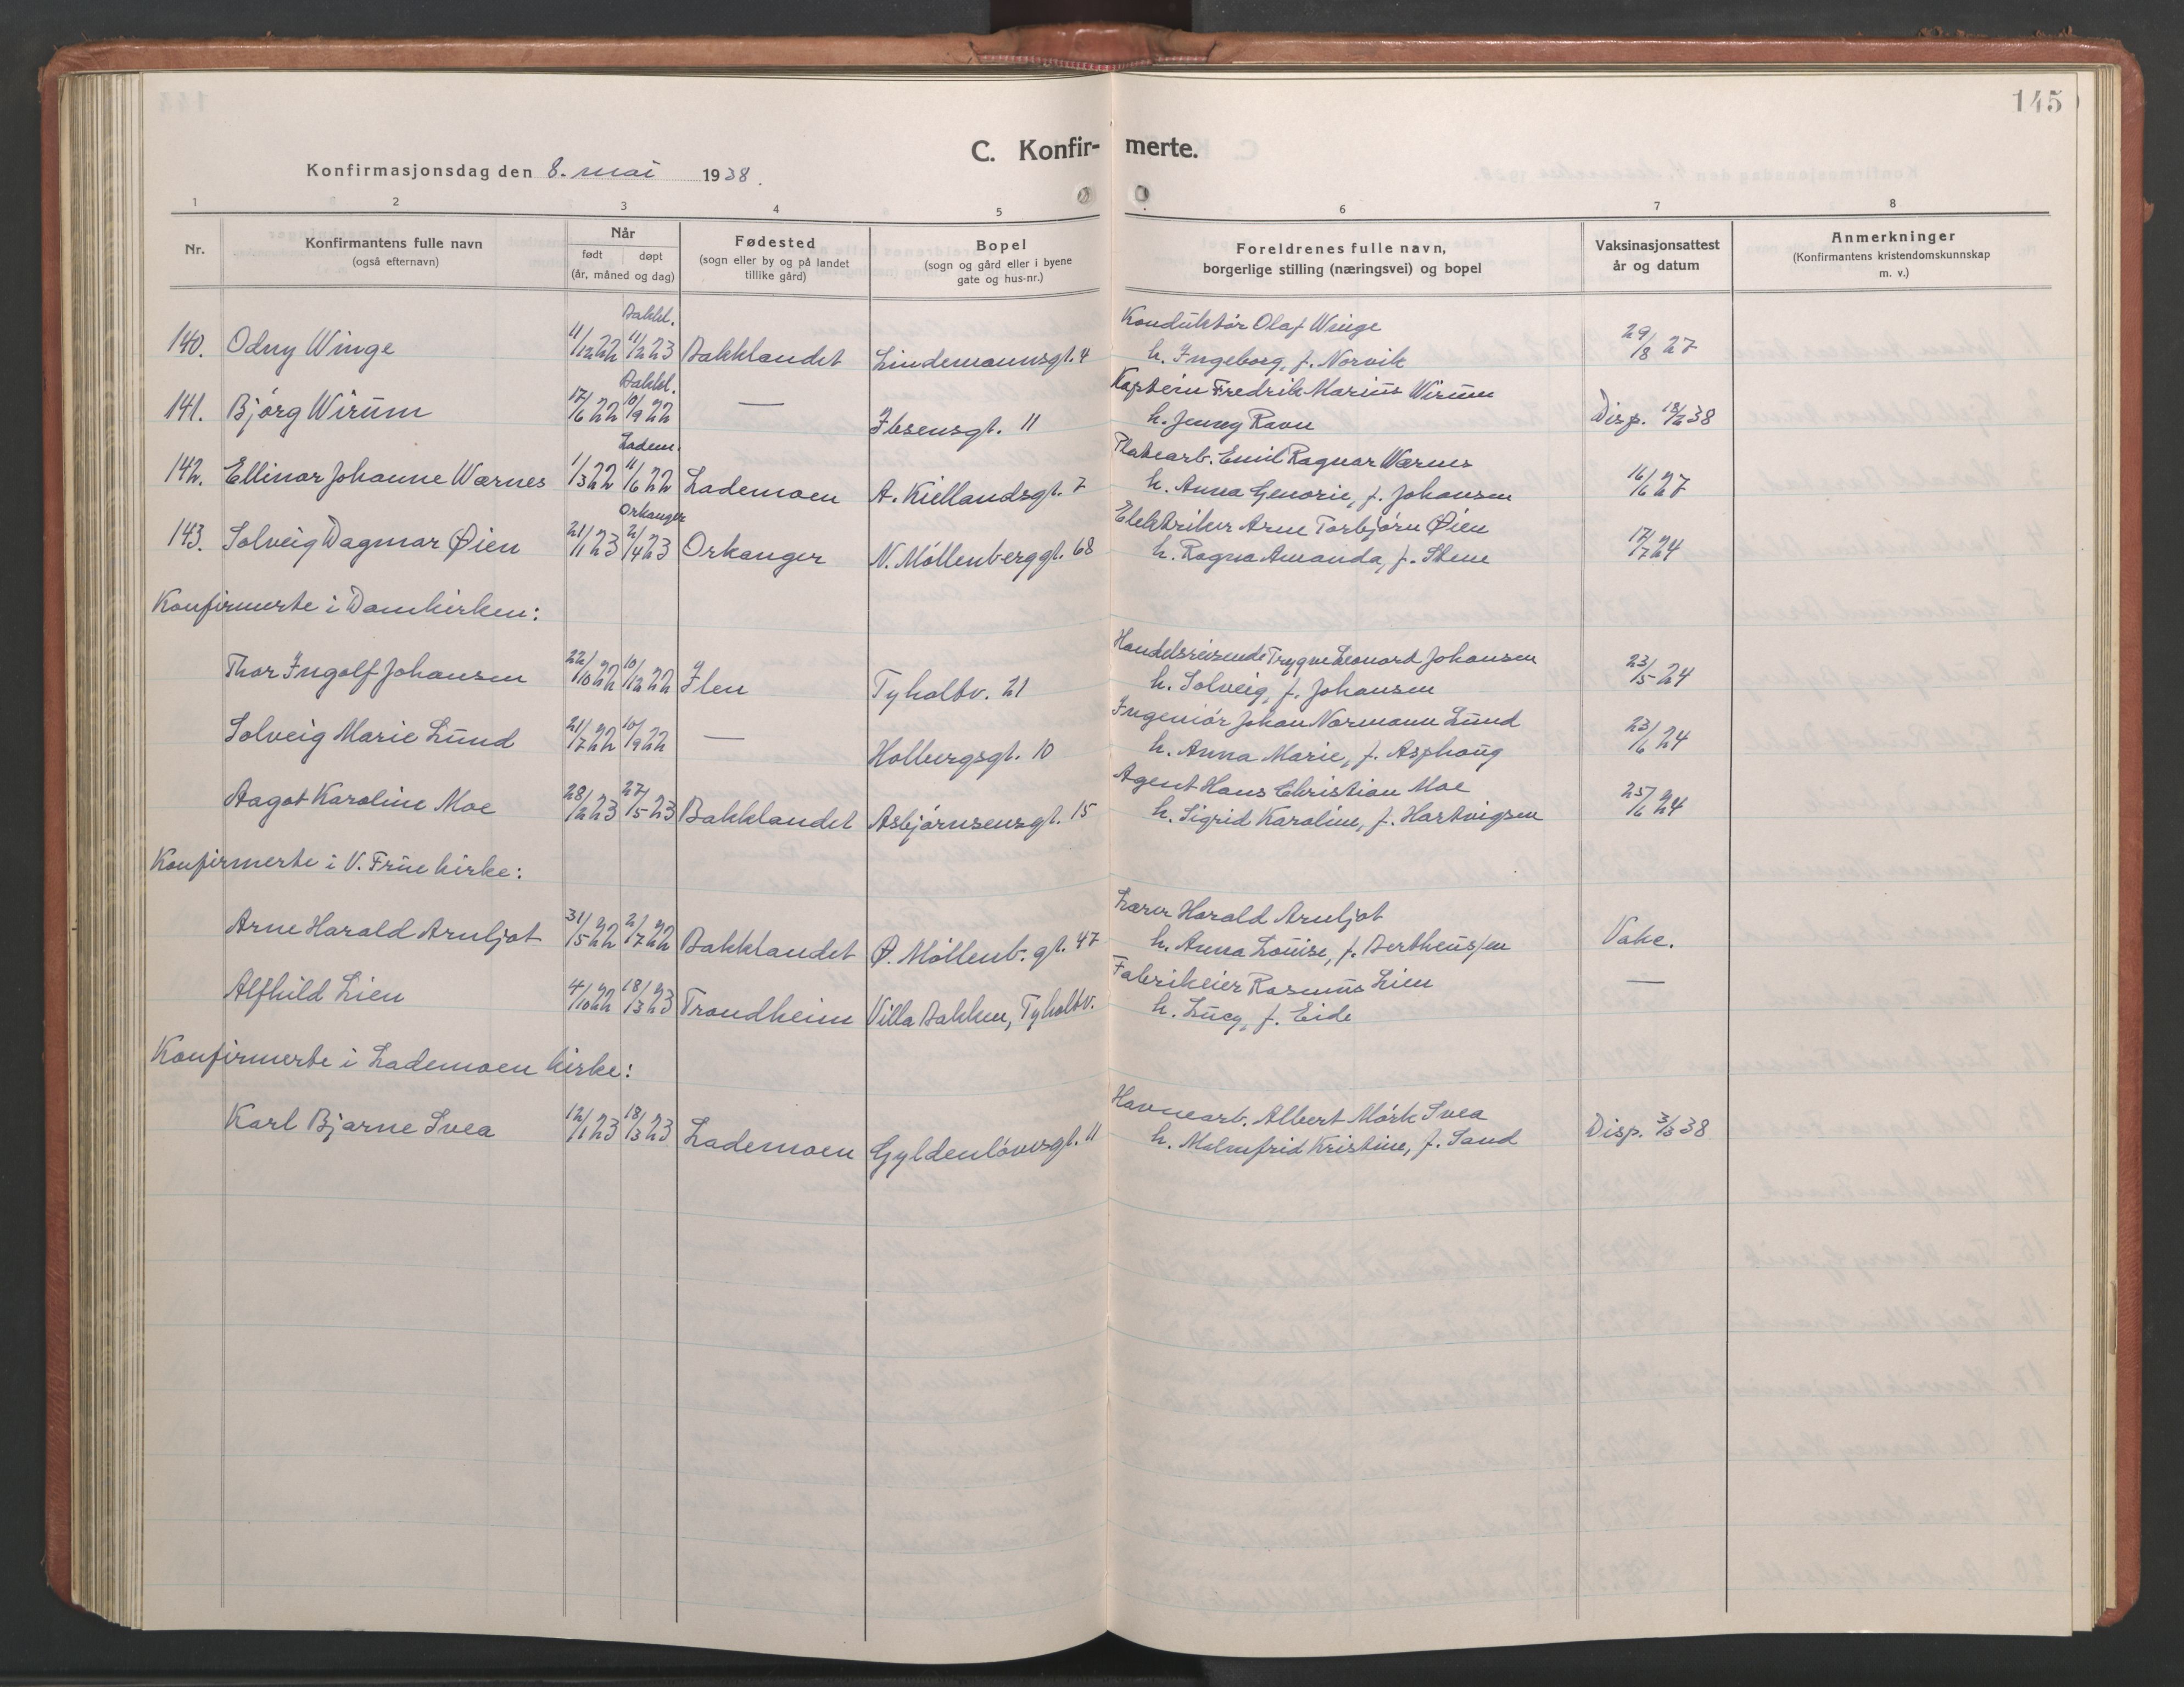 145
C. Konfirmerte.
Konfirmasjonsdag den 8. mai 1938.
1 2 3 4 5 6 7 8
Nr. | Konfirmantens fulle navn (også efternavn) | Når født døpt (år, måned og dag) | Fødested (sogn eller by og på landet tillike gård) | Bopel (sogn og gård eller i byene gate og hus-nr.) | Foreldrenes fulle navn, borgerlige stilling (næringsvei) og bopel | Vaksinasjonsattest år og datum | Anmerkninger (Konfirmantens kristendomskunnskap m. v.)
Bakkl.
140. Odny Winge 11/12 22 11/2 23 Bakklandet Lindemannsgt. 4 Konduktör Olaf Winge 29/8 27
h. Ingeborg, f. Norvik
Bakkl.
141. Björg Wirum 17/6 22 10/9 22 — Ibsensgt. 11 Kaptein Fredrik Marius Wirum Disp. 18/2 38
h. Jenny Ravn
Ladem.
142. Ellinor Johanne Wærnes 1/3 22 11/6 22 Lademoen A. Kiellandsgt. 7 Platearb. Emil Ragnar Wærnes 16/6 27
h. Anna Genorie, f. Johansen
Orkanger
143. Solveig Dagmar Øien 21/1 23 2/4 23 Orkanger N. Möllenberggt. 68 Elektriker Arne Torbjörn Øien 17/7 24
h. Ragna Amanda, f. Stene
Konfirmerte i Domkirken:
Thor Ingolf Johansen 22/10 22 10/12 22 Ilen Tyholtv. 21 Handelsreisende Trygve Leonard Johansen 23/5 24
h. Solveig, f. Johansen
Solveig Marie Lund 21/7 22 10/9 22 — Holbergsgt. 10 Ingeniör Johan Normann Lund 23/6 24
h. Anna Marie, f. Asphoug
Aagot Karoline Moe 28/2 23 27/5 23 Bakklandet Asbjörnsensgt. 15 Agent Hans Christian Moe 25/6 24
h. Sigrid Karoline, f. Hartvigsen
Konfirmerte i V. Frue kirke:
Arne Harald Arnljot 31/5 22 2/7 22 Bakklandet Ø. Möllenb. gt. 47 Lærer Harald Arnljot Vakc.
h. Anna Louise, f. Bertheussen
Alfhild Lien 4/10 22 18/3 23 Trondheim Villa Bakken, Tyholtv. Fabrikeier Rasmus Lien —
h. Lucy, f. Eide
Konfirmerte i Lademoen kirke:
Karl Bjarne Svea 12/1 23 18/3 23 Lademoen Gyldenlövesgt. 11 Havnearb. Albert Mörk Svea Disp. 3/3 38
h. Malmfrid Kristine, f. Sand